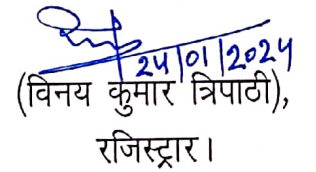 24/01/2024
(विनय कुमार त्रिपाठी),
रजिस्ट्रार।